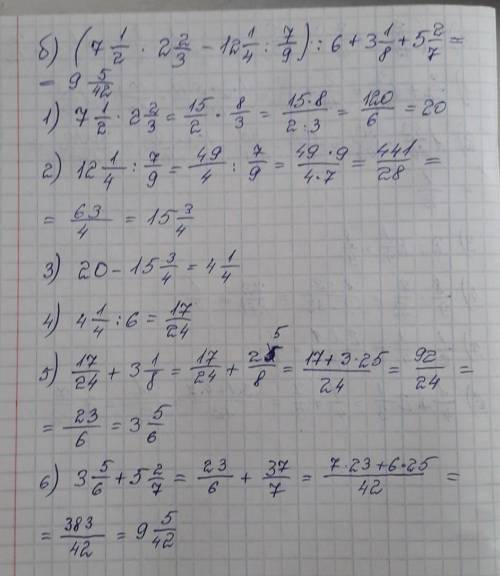 б) (7 1/2 · 2 2/3 - 12 1/4 : 7/9) : 6 + 3 1/8 + 5 2/7 =
= 9 5/42
1) 7 1/2 · 2 2/3 = 15/2 · 8/3 = 15·8/2·3 = 120/6 = 20
2) 12 1/4 : 7/9 = 49/4 : 7/9 = 49·9/4·7 = 441/28 =
= 63/4 = 15 3/4
3) 20 - 15 3/4 = 4 1/4
4) 4 1/4 : 6 = 17/24
5) 17/24 + 3 1/8 = 17/24 + 25/8 = 17+3·25/24 = 92/24 =
= 23/6 = 3 5/6
6) 3 5/6 + 5 2/7 = 23/6 + 37/7 = 7·23+6·25/42 =
= 383/42 = 9 5/42